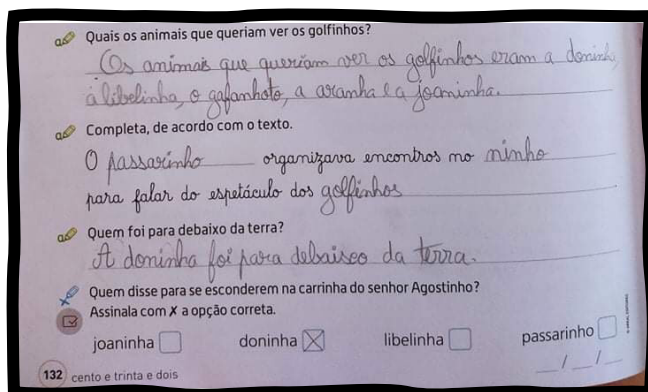 Quais os animais que queriam ver os golfinhos?
Os animais que queriam ver os golfinhos eram a doninha,
a libelinha, o gafanhoto, a aranha e a joaninha.
Completa, de acordo com o texto.
O passarinho organizava encontros no ninho
para falar do espetáculo dos golfinhos
Quem foi para debaixo da terra?
A doninha foi para debaixo da terra.
Quem disse para se esconderem na carrinha do senhor Agostinho?
Assinala com ✗ a opção correta.
joaninha doninha libelinha passarinho
132 cento e trinta e dois __/__/__